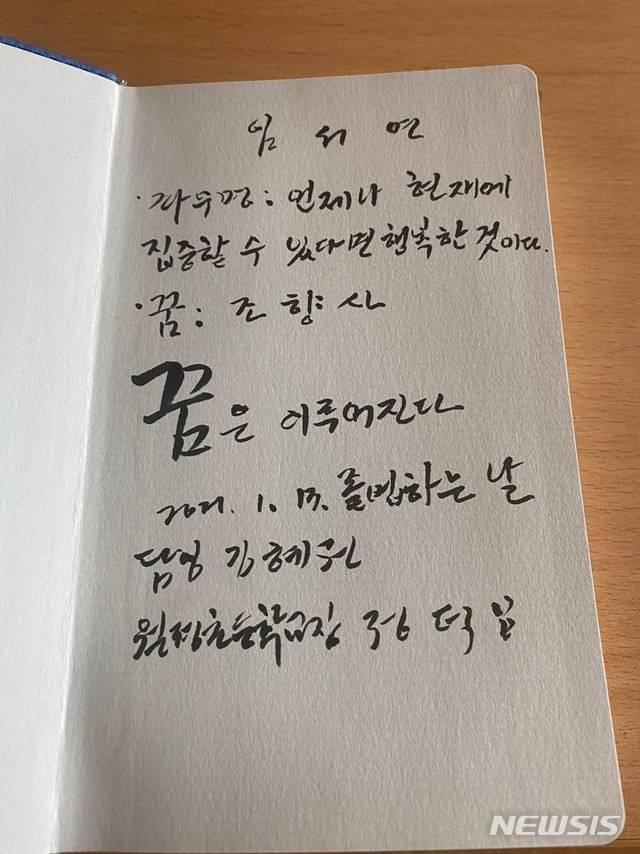 임 서 연
· 좌우명 : 언제나 현재에
집중할 수 있다면 행복한 것이다.
· 꿈 : 조 향 사
꿈은 이루어진다
2021. 1. 13. 졸업하는 날
담임 김혜원
월정초등학교장 정 덕
NEWSIS